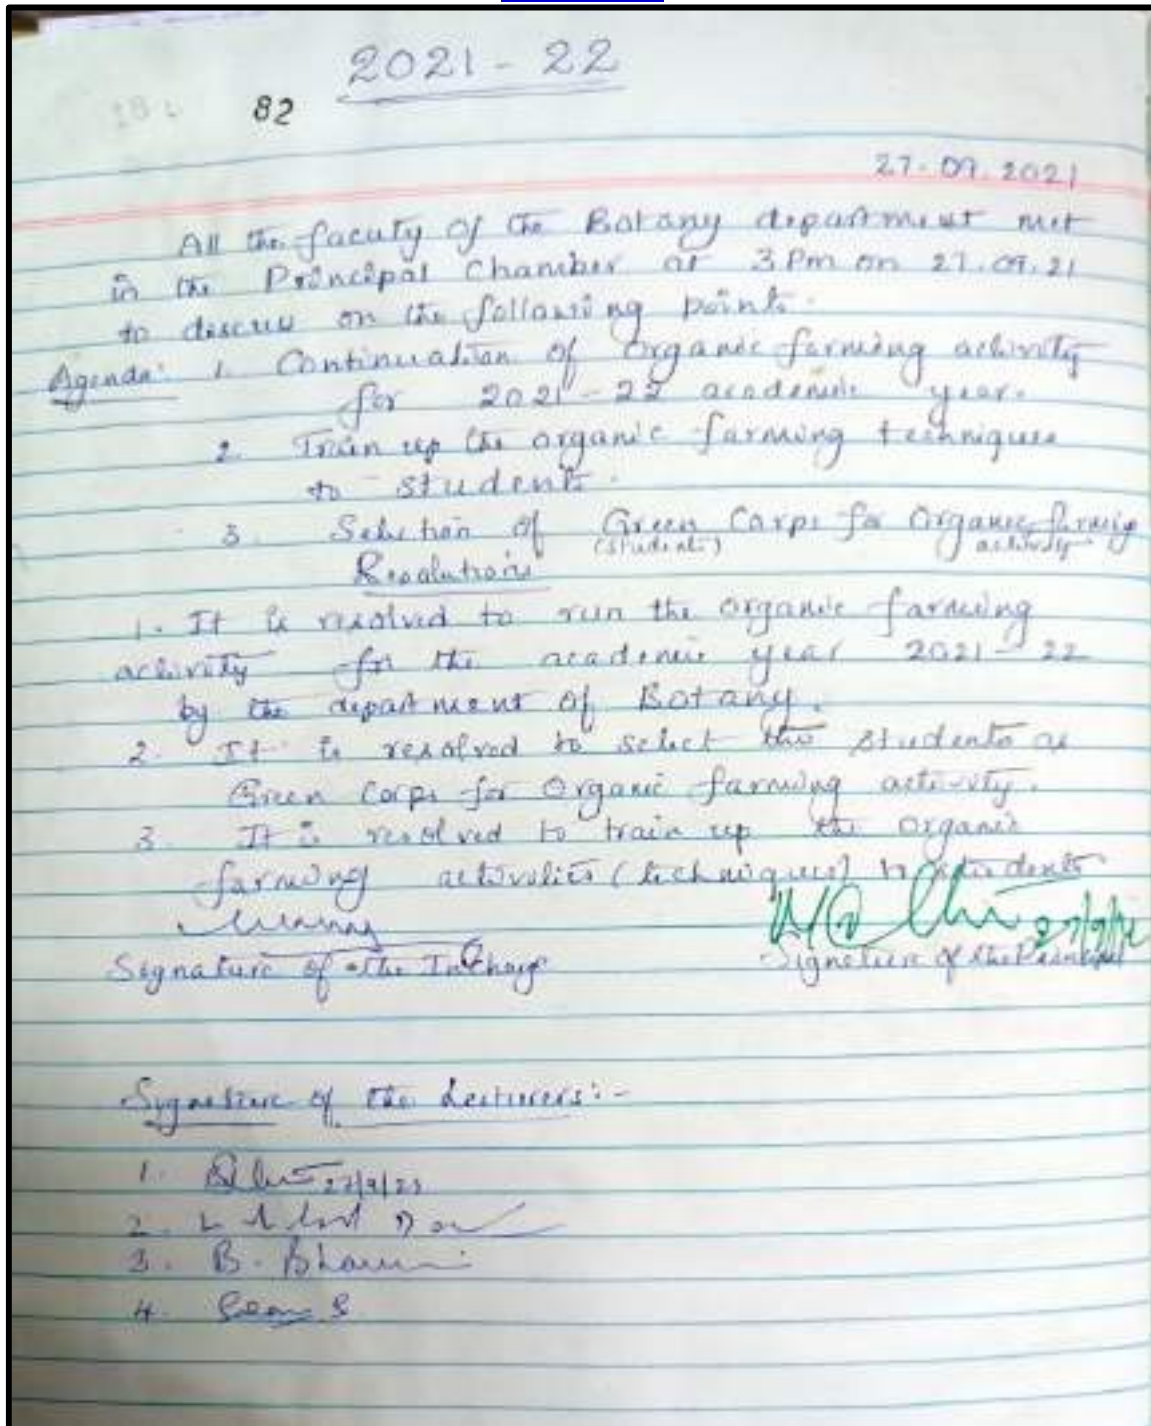 2021 - 22
82
27.09.2021
All the facuty of the Botany department met
in the Principal Chamber at 3 Pm on 27.09.21
to discuss on the following points.
Agenda: 1. Continuation of organic farming activity
for 2021-22 academic year.
2. Train up the organic farming techniques
to students.
3. Selection of Green Corps for Organic farming
(students) activity
Resolutions
1. It is resolved to run the organic farming
activity for the academic year 2021-22
by the department of Botany.
2. It is resolved to select the students as
Green Corps for Organic farming activity.
3. It is resolved to train up the organic
farming activities (techniques) to students
27/9/21
Signature of the Incharge Signature of the Principal
Signature of the Lecturers:-
1.
2.
3. B.
4.